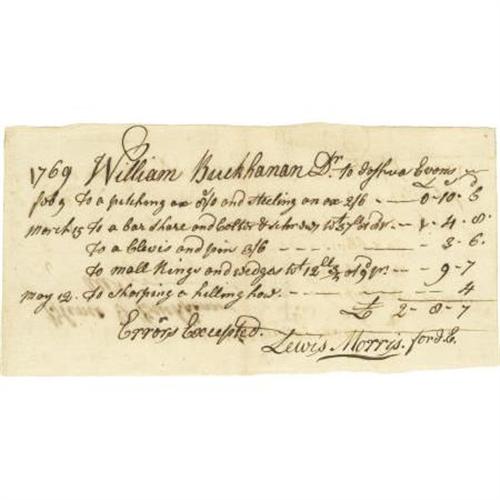 1769 William Buckhanan Dr. to Joshua Evans
£ s d
feb 9 To a pitching ax 8/0 and steeling an ax 2/6 0-10-6
March 15 To a bar share and Colter & 1-4-8
To a Clevis and pin 3/6 3-6
To mall Rings and wedges wt 12 9-7
May 12 To sharping a hilling how 4
£ 2-8-7
Errors Excepted
Lewis Morris. for J.E.